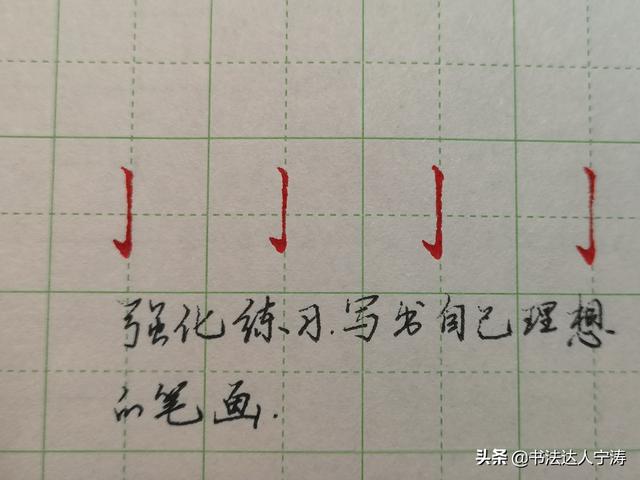 亅 亅 亅 亅
强化练习.写出自己理想
的笔画.
头条 @书法达人宁涛